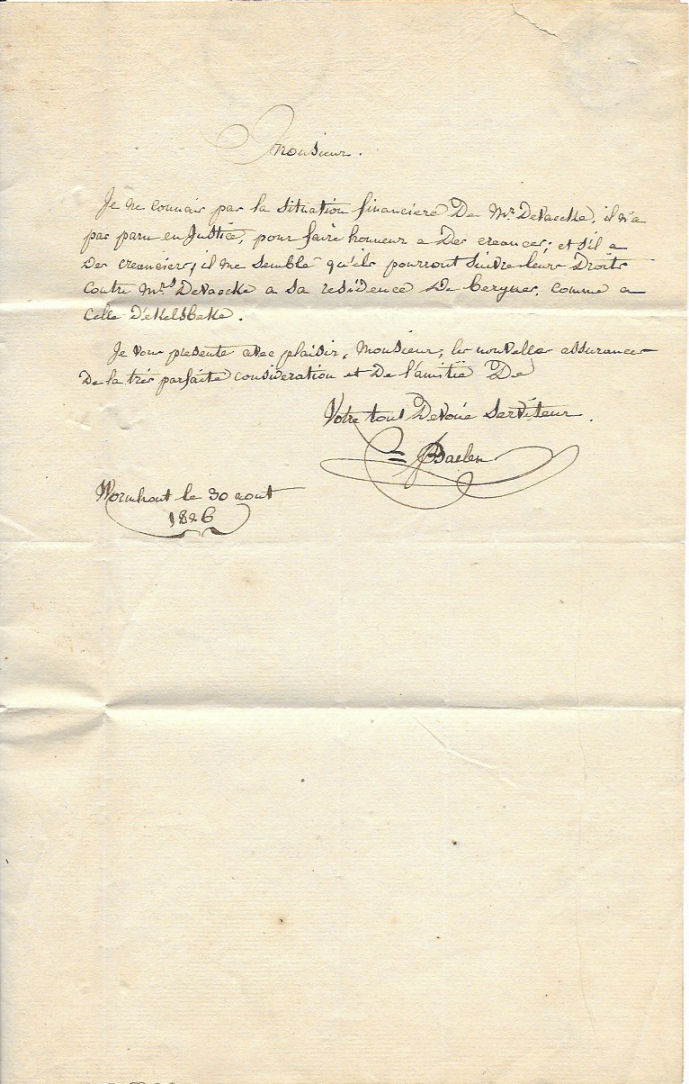 Monsieur.
Je ne connais pas la situation financiere De Mr. DeVaecke, il n'a
pas paru en Justice, pour faire honneur a Des creances; et s'il a
Des creanciers, il me semble qu'ils pourront suivre leurs Droits
contre Mrs DeVaecke a sa residence De bergues, comme a
Celle D'ekelsbeke.
Je vous presente avec plaisir, Monsieur, les nouvelles assurances
De la très parfaite consideration et De l'amitié De
Votre tout Devoué Serviteur.
Baelen
Wormhout le 30 aout
1826